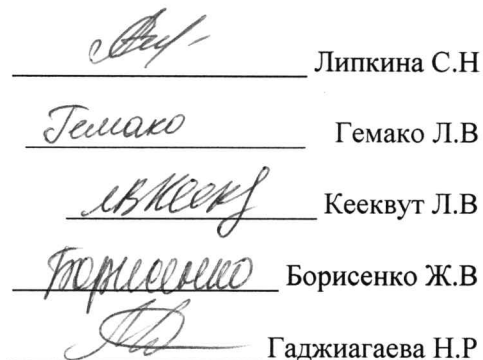 Липкина С.Н
Гемако Гемако Л.В
Кееквут Л.В
Борисенко Борисенко Ж.В
Гаджиагаева Н.Р